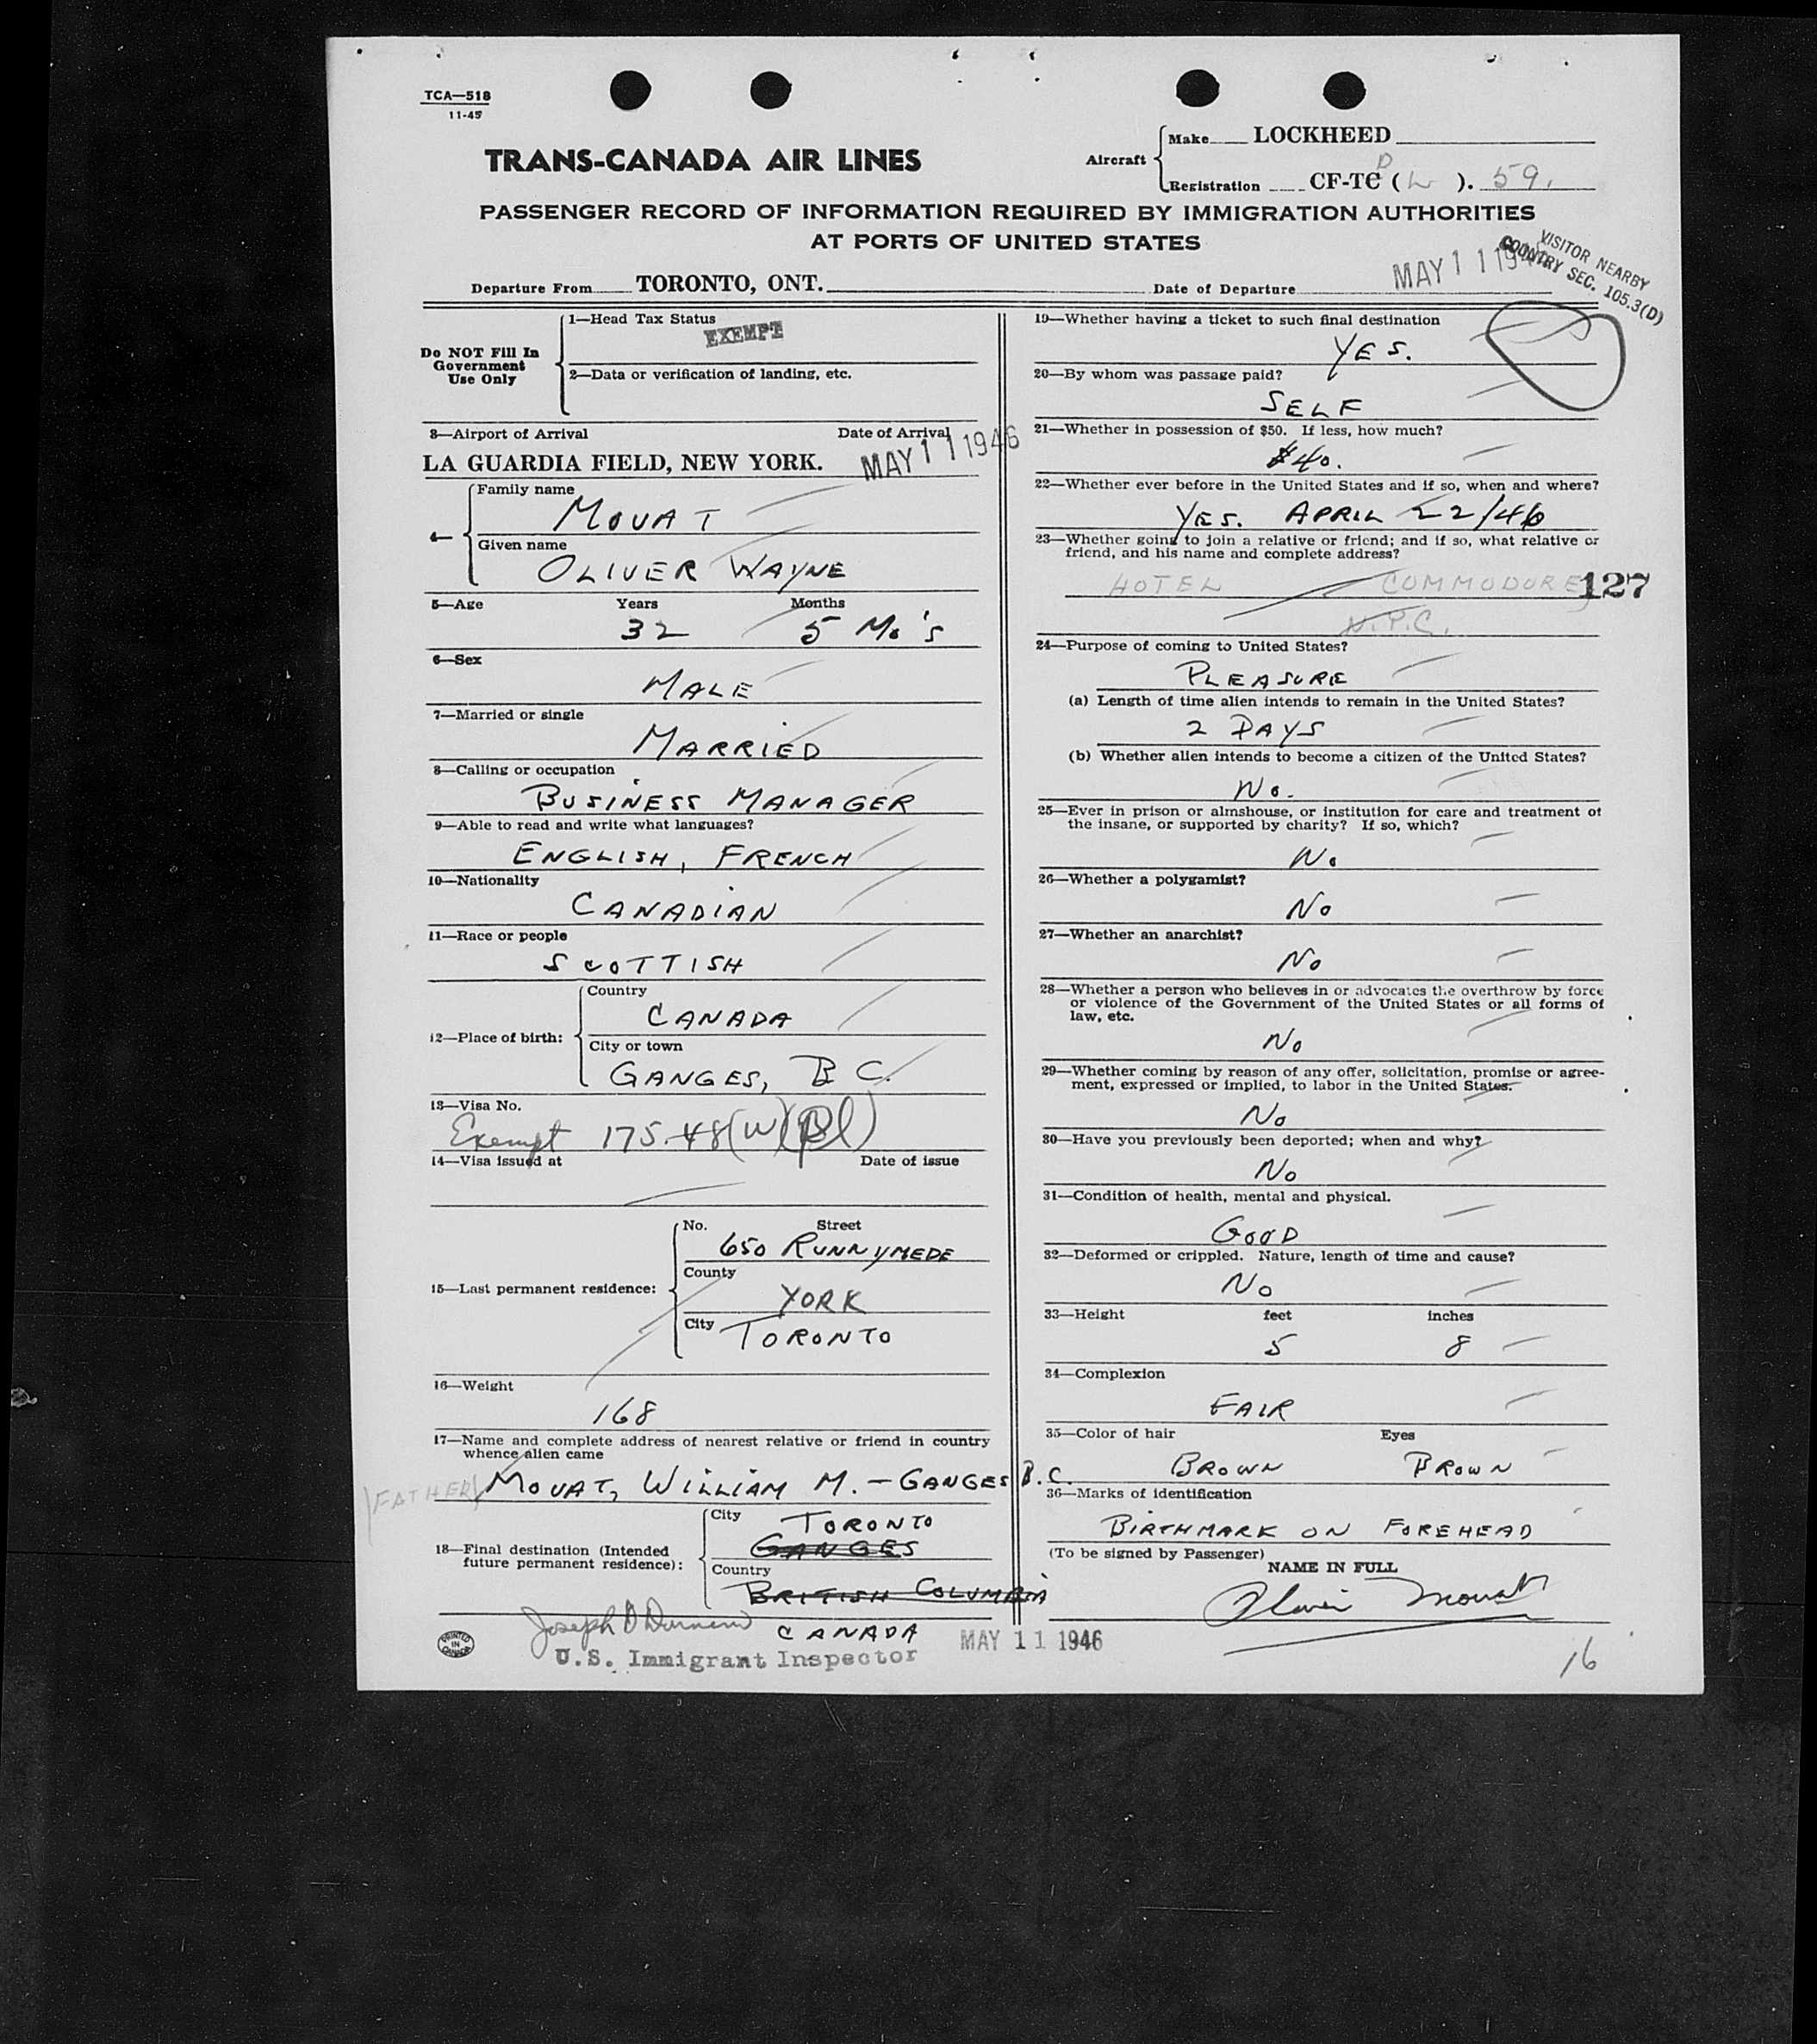 TCA—518
11-45
TRANS-CANADA AIR LINES
Aircraft
Make LOCKHEED
Registration CF-TC D (L). 59.
PASSENGER RECORD OF INFORMATION REQUIRED BY IMMIGRATION AUTHORITIES
AT PORTS OF UNITED STATES
VISITOR NEARBY
COUNTRY SEC. 105.3(D)
Departure From TORONTO, ONT. Date of Departure MAY 11 194
Do NOT Fill In
Government
Use Only
1—Head Tax Status
EXEMPT
2—Data or verification of landing, etc.
3—Airport of Arrival Date of Arrival
LA GUARDIA FIELD, NEW YORK. MAY 11 1946
4—
Family name
MOUAT
Given name
OLIVER WAYNE
5—Age Years Months
32 5 Mo's
6—Sex
MALE
7—Married or single
MARRIED
8—Calling or occupation
BUSINESS MANAGER
9—Able to read and write what languages?
ENGLISH, FRENCH
10—Nationality
CANADIAN
11—Race or people
SCOTTISH
12—Place of birth:
Country
CANADA
City or town
GANGES, B C.
13—Visa No.
Exempt 175.48(W)
14—Visa issued at Date of issue
15—Last permanent residence:
No. Street
650 RUNNYMEDE
County
YORK
City TORONTO
16—Weight
168
17—Name and complete address of nearest relative or friend in country
whence alien came
(FATHER) MOUAT, WILLIAM M. – GANGES B.C.
18—Final destination (Intended
future permanent residence):
City TORONTO
GANGES
Country
BRITISH COLUMBIA
CANADA
Joseph D
U.S. Immigrant Inspector
MAY 11 1946
PRINTED
IN
CANADA
19—Whether having a ticket to such final destination
YES.
20—By whom was passage paid?
SELF
21—Whether in possession of $50. If less, how much?
$40.
22—Whether ever before in the United States and if so, when and where?
YES. APRIL 22/46
23—Whether going to join a relative or friend; and if so, what relative or
friend, and his name and complete address?
HOTEL COMMODORE, 127
N.Y.C.
24—Purpose of coming to United States?
PLEASURE
(a) Length of time alien intends to remain in the United States?
2 DAYS
(b) Whether alien intends to become a citizen of the United States?
No.
25—Ever in prison or almshouse, or institution for care and treatment of
the insane, or supported by charity? If so, which?
No
26—Whether a polygamist?
No
27—Whether an anarchist?
No
28—Whether a person who believes in or advocates the overthrow by force
or violence of the Government of the United States or all forms of
law, etc.
No
29—Whether coming by reason of any offer, solicitation, promise or agree-
ment, expressed or implied, to labor in the United States.
No
30—Have you previously been deported; when and why?
No
31—Condition of health, mental and physical.
GOOD
32—Deformed or crippled. Nature, length of time and cause?
No
33—Height feet inches
5 8
34—Complexion
FAIR
35—Color of hair Eyes
BROWN BROWN
36—Marks of identification
BIRTHMARK ON FOREHEAD
(To be signed by Passenger)
NAME IN FULL
Oliver Mouat
16